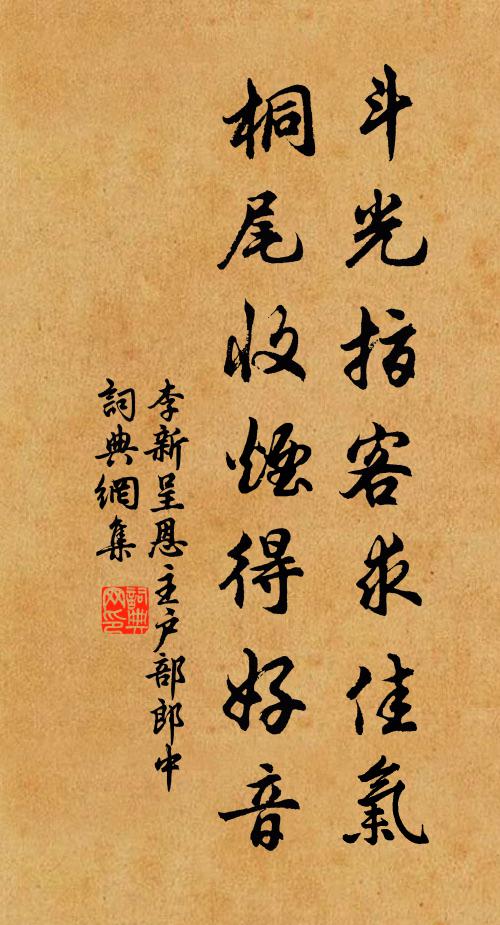 斗光指客求佳氣
桐尾收煙得好音
李新呈恩主戶部郎中
詞典網集
詞典網印